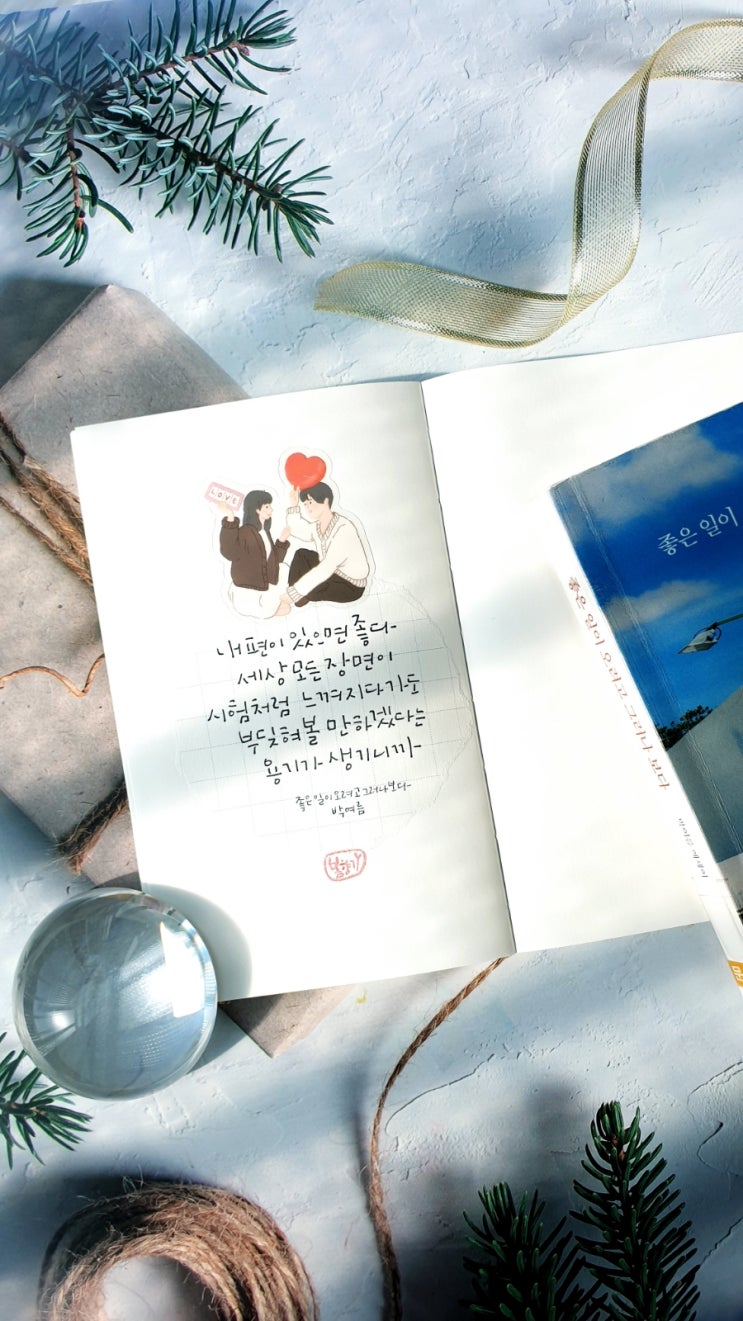 LOVE
내 편이 있으면 좋다
세상 모든 장면이
시험처럼 느껴지다가도
부딪혀볼 만하겠다는
용기가 생기니까
좋은 일이 오려고 그러나 보다
박여름
봄향기
좋은 일이
좋은 일이 오려고 그러나 보다